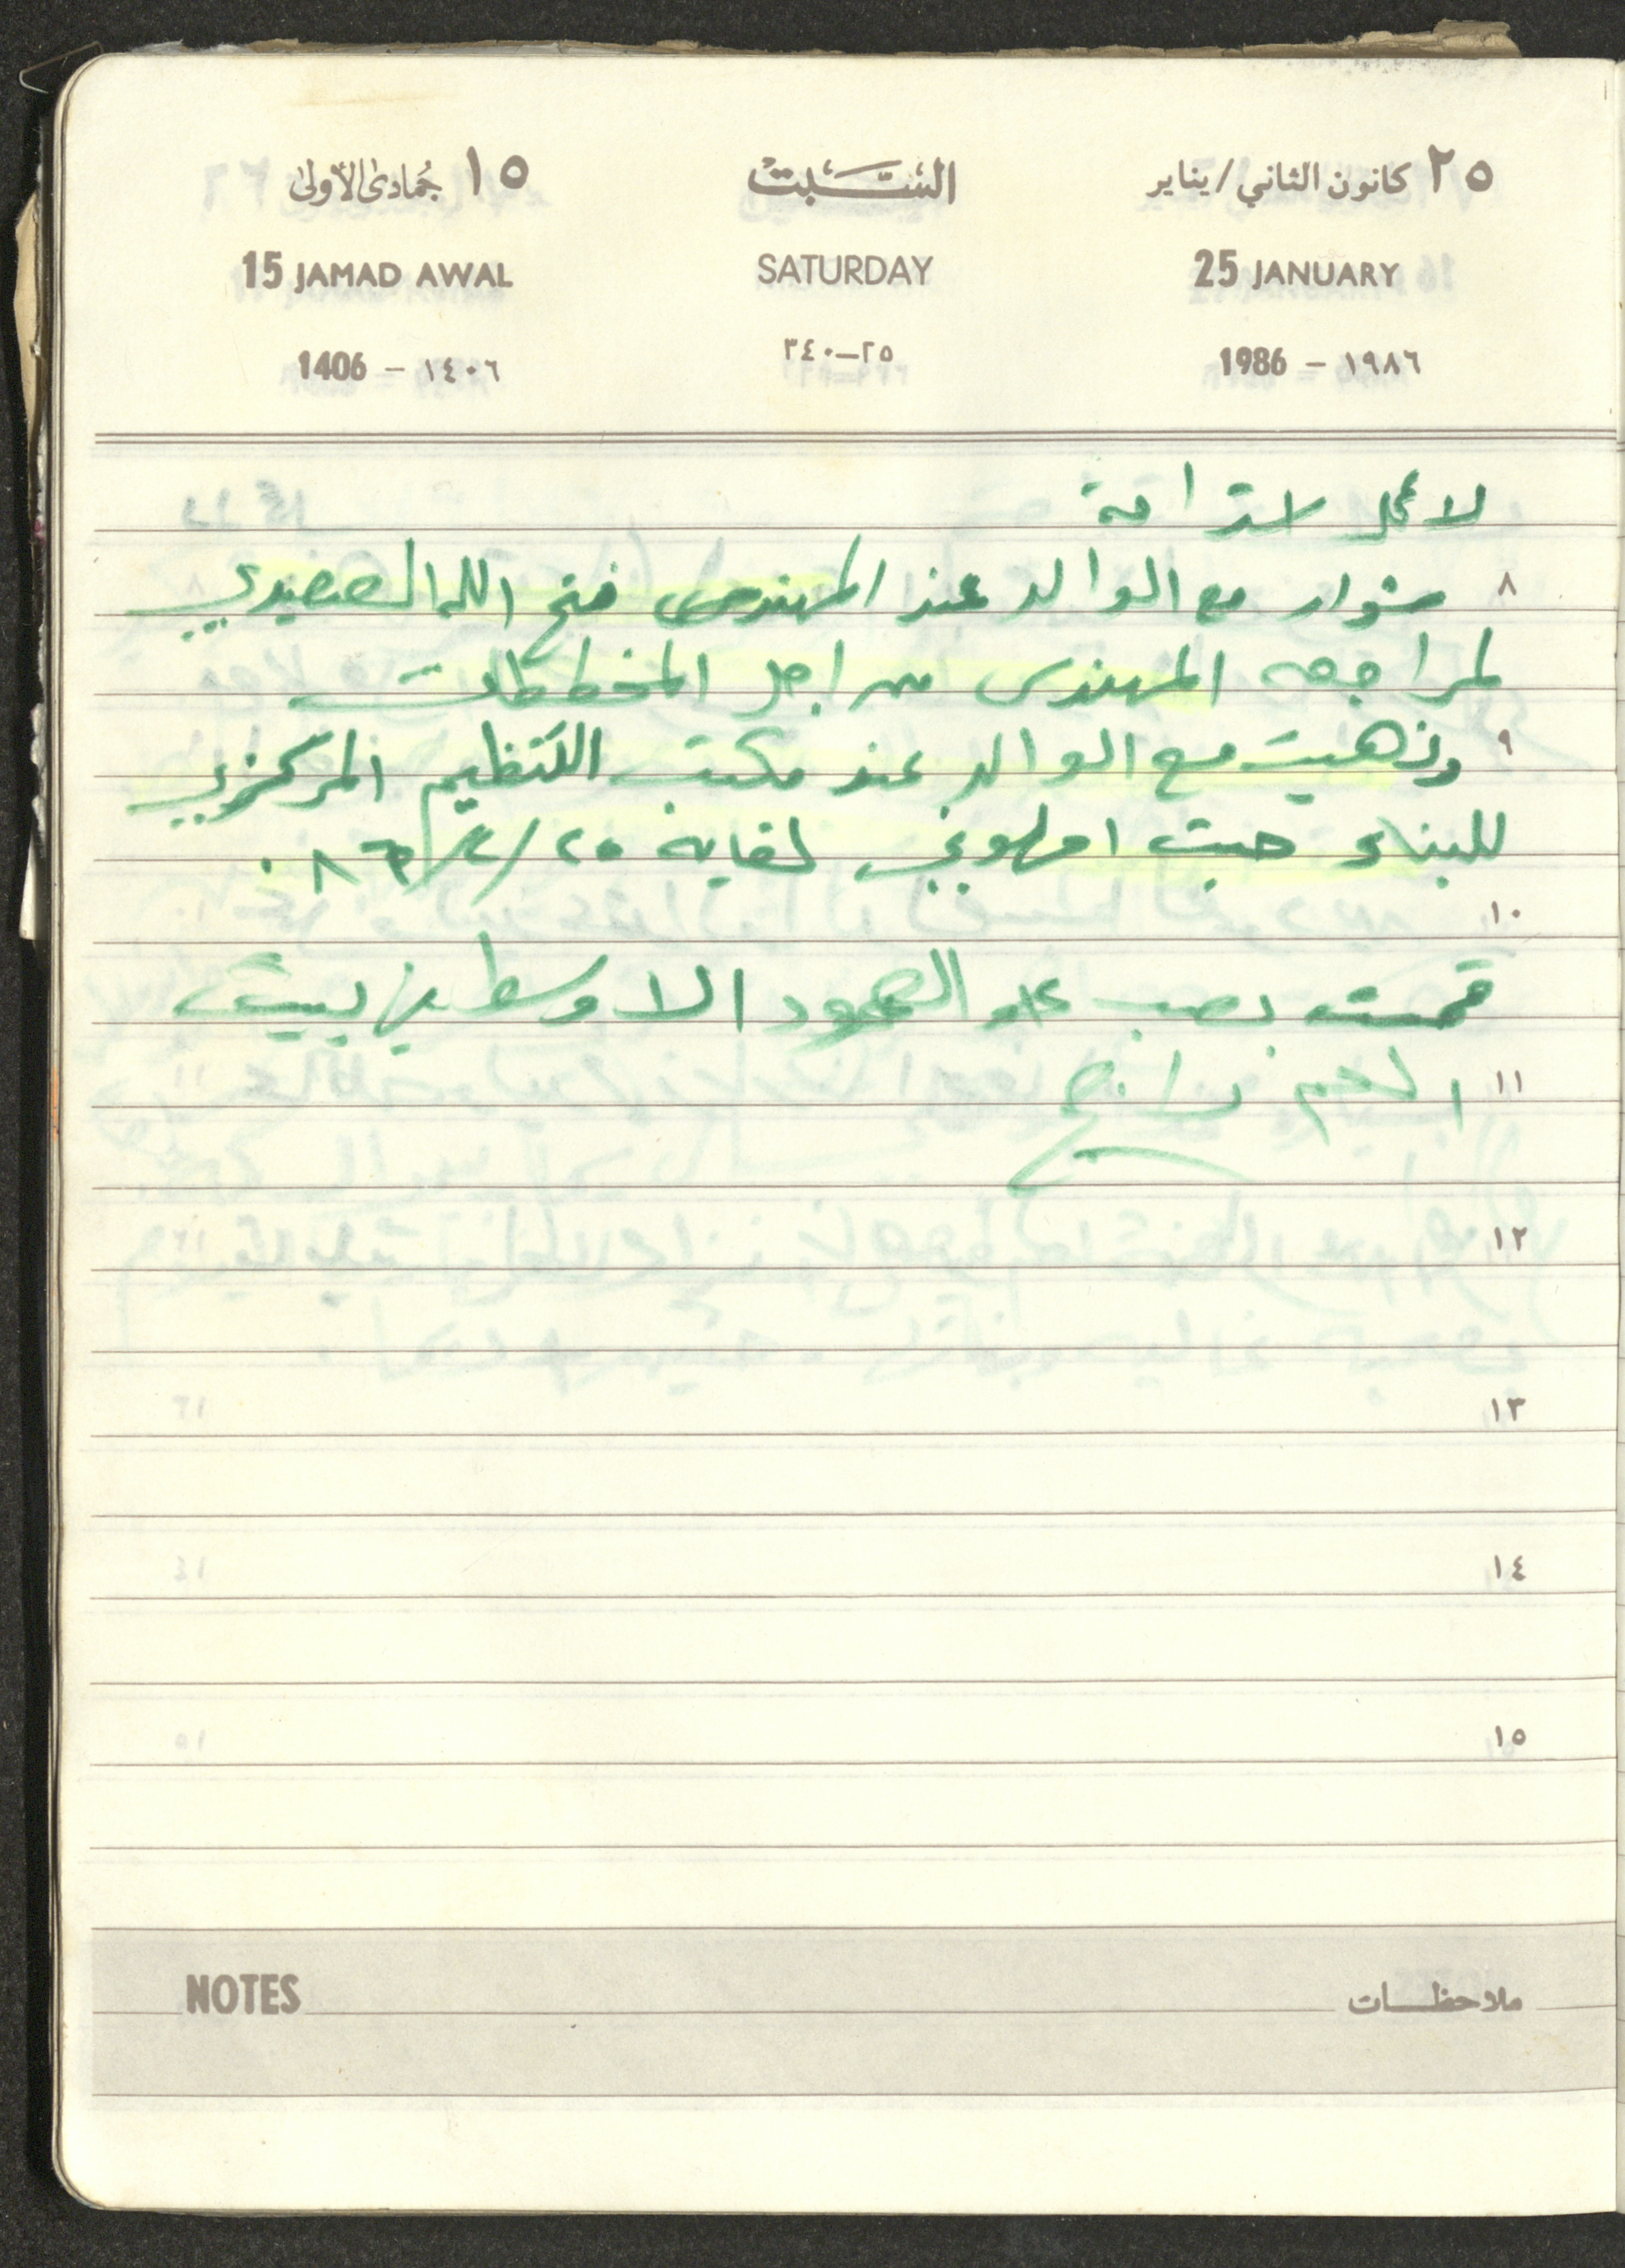 ٢٥ كانون الثاني/يناير السبت ١٥ جمادى الأولى
25 JANUARY SATURDAY 15 JAMAD AWAL
1986 - ١٩٨٦ ٢٥-٣٤٠ 1406 - ١٤٠٦
لا عمل استراحة
٨ مشوار مع الوالد عند المهندس فتح الله الصعيدي
لمراجعه المهندس من اجل المخططات
٩ وذهبت مع الوالد عند مكتب التنظيم المركزي
للبناء حيث امهلوني لغاية ٢٥/٢/٨٦.
١٠
قمت بصب العمود الاوسط في بيت
١١ العم
١٢
١٣
١٤
١٥
NOTES ملاحظات